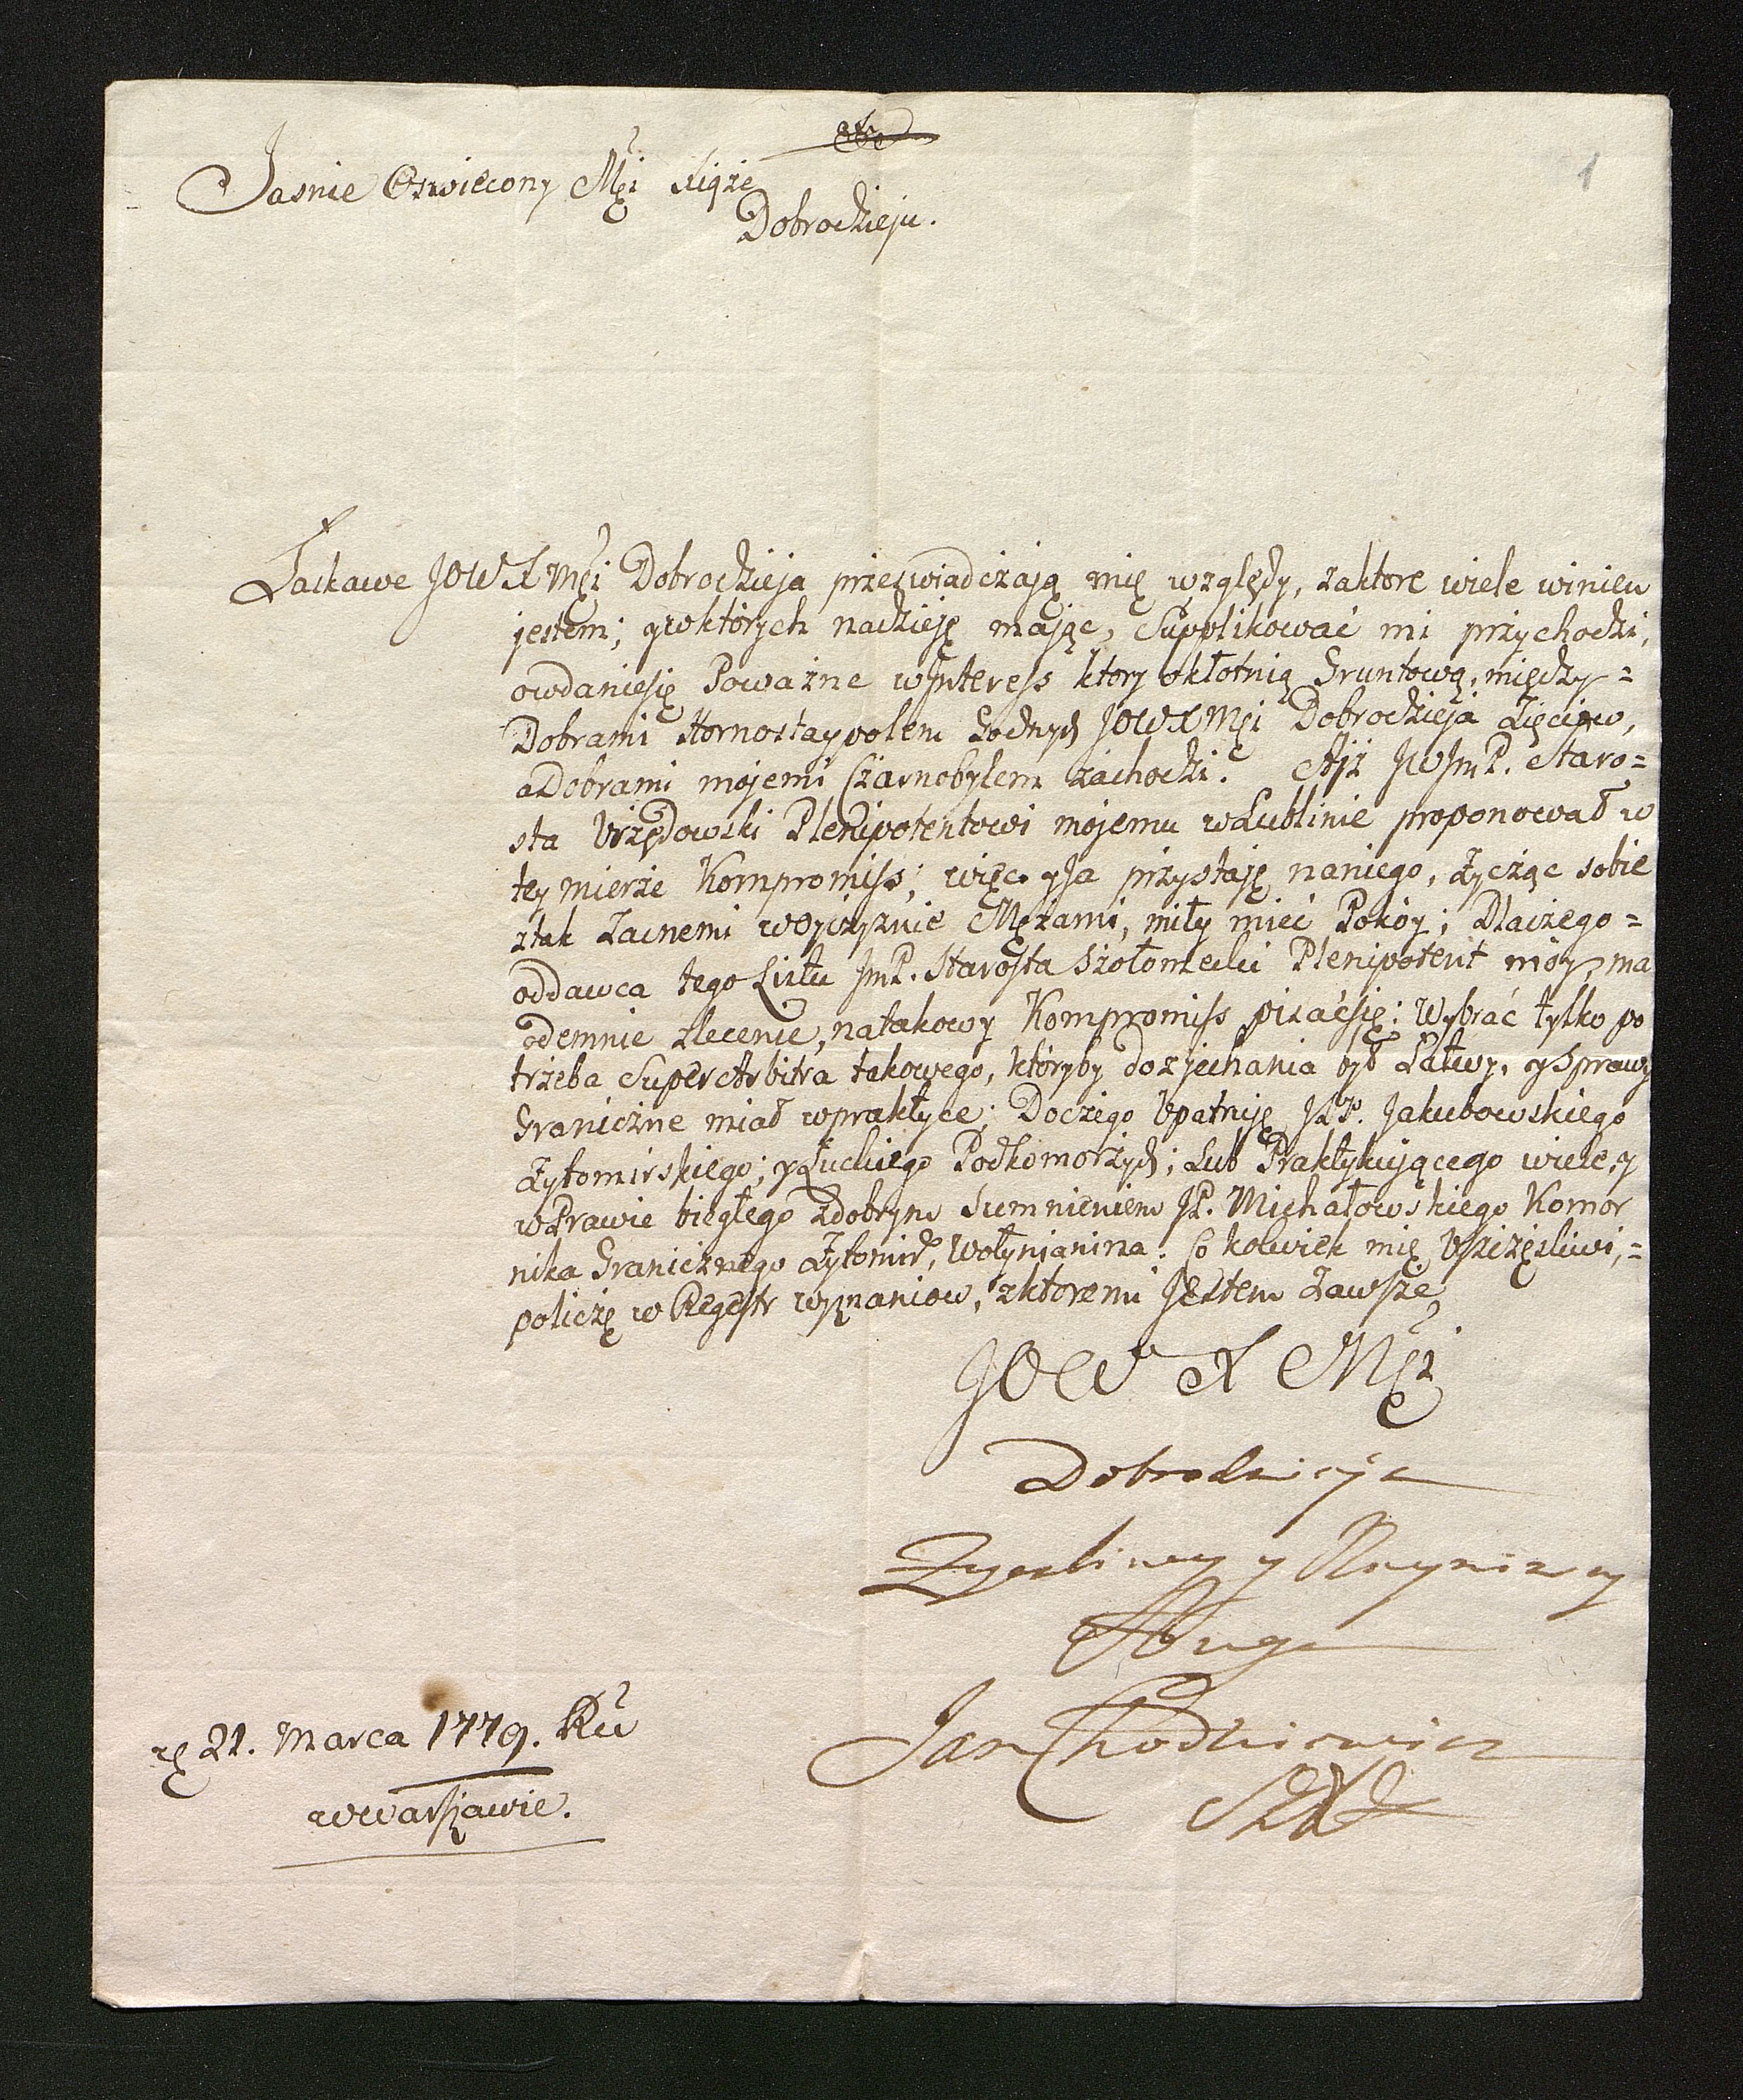 1
Jasnie Oswiecony Mci Xiąże
Dobrodzieju.
Łaskawe JOWX Mci Dobrodzieja przeswiadczają mię względy, zaktore wiele winien
jestem; ywktórych nadzieję mając, Supplikować mi przychodzi,
owdaniesię Poważne wJnteress ktory okłotnią Gruntową, między=
Dobrami Hornostaypolem Godnych JOWXMci Dobrodzieja Zięciow,
aDobrami mojemi Czarnobylem zachodzi. Ajż JWJmP. Staro=
sta Urzędowski Plenipotentowi mojemu wLublinie proponował w
tey mierze Kompromiss; więc yJa przystaję naniego, życząc sobie
ztak Zacnemi wOyczyznie Mężami, miły mieć Pokóy; Dlaczego=
oddawca tego Listu JmP. Starosta Szołomecki Plenipotent móy, ma
odemnie zlecenie, natakowy Kompromiss pisaćsię: Wybrać tylko po
trzeba SuperArbitra takowego, któryby dozjechania był Łatwy, ySprawy
Graniczne miał wpraktyce; Doczego Upatruję JP. Jakubowskiego
Zytomirskiego; yŁuckiego Podkomorzych; Lub Praktykującego wiele, y
wPrawie biegłego zdobrym Sumnieniem JP. Michałowskiego Komor
nika Granicznego Zytomir, Wołynianina. Co kolwiek mię Uszczęsliwi,=
policzę w Regestr wyznaniow, zktoremi Jestem Zawsze
JOW X Mci
Dobrodzieja
Zyczliwy y Nayniższy
Sługa
Jan Chodkiewicz
SXZ
21. Marca 1779. Ru
wwarszawie.